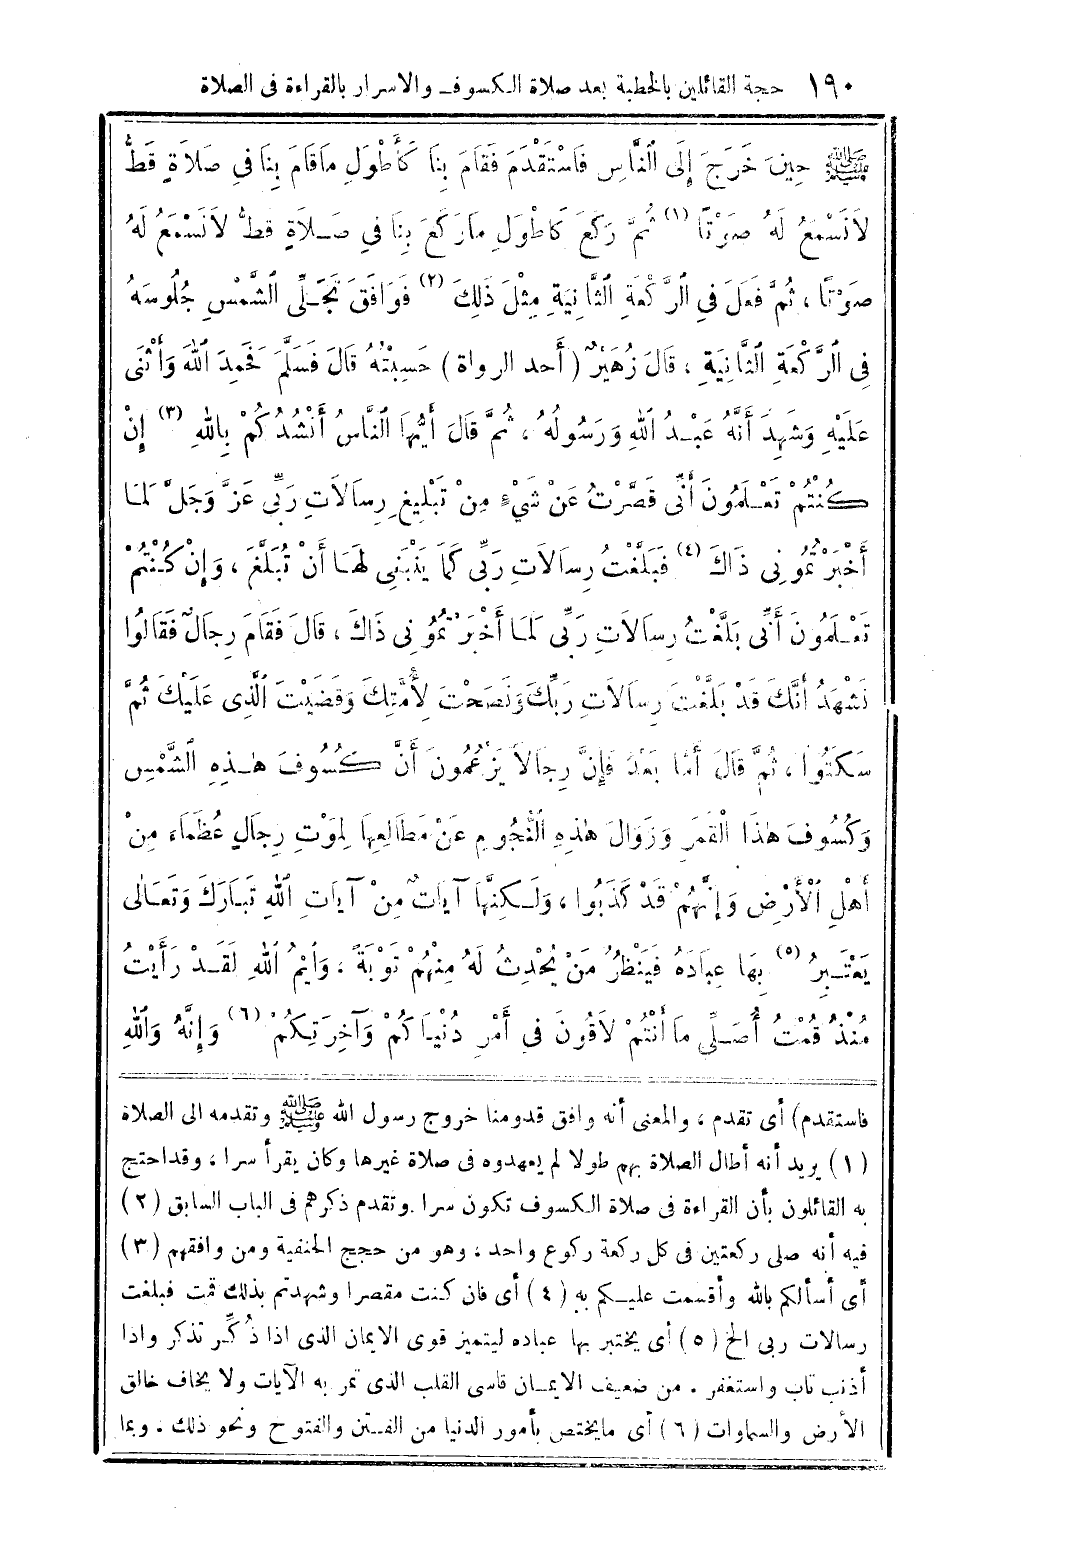 ١٩٠ حجة القائلين بالخطبة بعد صلاة الكسوف والاسرار بالقراءة فى الصلاة
ﷺ حِينَ خَرَجَ إِلَى النَّاسِ فَاسْتَقْدَمَ فَقَامَ بِنَا كَأَطْوَلِ مَاقَامَ بِنَا فِي صَلَاةٍ قَطُّ
لَانَسْمَعُ لَهُ صَوْتًا (١) ثُمَّ رَكَعَ كَأَطْوَلِ مَارَكَعَ بِنَا فِي صَلَاةٍ قَطُّ لَانَسْمَعُ لَهُ
صَوْتًا ، ثُمَّ فَعَلَ فِي الرَّكْعَةِ الثَّانِيَةِ مِثْلَ ذَلِكَ (٢) فَوَافَقَ تَجَلِّى الشَّمْسِ جُلُوسَهُ
فِي الرَّكْعَةِ الثَّانِيَةِ ، قَالَ زُهَيْرٌ (أحد الرواة) حَسِبْتُهُ قَالَ فَسَلَّمَ فَحَمِدَ اللهَ وَأَثْنَى
عَلَيْهِ وَشَهِدَ أَنَّهُ عَبْدُ اللهِ وَرَسُولُهُ ، ثُمَّ قَالَ أَيُّهَا النَّاسُ أَنْشُدُكُمْ بِاللهِ (٣) إِنْ
كُنْتُمْ تَعْلَمُونَ أَنِّى قَصَّرْتُ عَنْ شَيْءٍ مِنْ تَبْلِيغِ رِسَالَاتِ رَبِّى عَزَّ وَجَلَّ لَمَا
أَخْبَرْتُمُونِى ذَاكَ (٤) فَبَلَّغْتُ رِسَالَاتِ رَبِّى كَمَا يَنْبَغِى لَهَا أَنْ تُبَلَّغَ ، وَإِنْ كُنْتُمْ
تَعْلَمُونَ أَنِّى بَلَّغْتُ رِسَالَاتِ رَبِّى لَمَا أَخْبَرْتُمُونِى ذَاكَ ، قَالَ فَقَامَ رِجَالٌ فَقَالُوا
نَشْهَدُ أَنَّكَ قَدْ بَلَّغْتَ رِسَالَاتِ رَبِّكَ وَنَصَحْتَ لِأُمَّتِكَ وَقَضَيْتَ الَّذِى عَلَيْكَ ثُمَّ
سَكَتُوا ، ثُمَّ قَالَ أَمَّا بَعْدَ فَإِنَّ رِجَالاً يَزْعُمُونَ أَنَّ كُسُوفَ هٰذِهِ الشَّمْسِ
وَكُسُوفَ هٰذَا الْقَمَرِ وَزَوَالَ هٰذِهِ النُّجُومِ عَنْ مَطَالِعِهَا لِمَوْتِ رِجَالٍ عُظَمَاءَ مِنْ
أَهْلِ الْأَرْضِ وَإِنَّهُمْ قَدْ كَذَبُوا ، وَلَكِنَّهَا آيَاتٌ مِنْ آيَاتِ اللهِ تَبَارَكَ وَتَعَالَى
يَعْتَبِرُ (٥) بِهَا عِبَادَهُ فَيَنْظُرُ مَنْ يُحْدِثُ لَهُ مِنْهُمْ تَوْبَةً ، وَايْمُ اللهِ لَقَدْ رَأَيْتُ
مُنْذُ قُمْتُ أُصَلِّي مَا أَنْتُمْ لَاقُونَ فِي أَمْرِ دُنْيَاكُمْ وَآخِرَتِكُمْ (٦) وَإِنَّهُ وَاللهِ
فاستقدم) أى تقدم ، والمعنى أنه وافق قدومنا خروج رسول الله ﷺ وتقدمه الى الصلاة
(١) يريد أنه أطال الصلاة بهم طولا لم يعهدوه فى صلاة غيرها وكان يقرأ سرا ، وقد احتج
به القائلون بأن القراءة فى صلاة الكسوف تكون سرا وتقدم ذكرهم فى الباب السابق (٢)
فيه أنه صلى ركعتين فى كل ركعة ركوع واحد ، وهو من حجج الحنفية ومن وافقهم (٣)
أى أسألكم بالله وأقسمت عليكم به (٤) أى فان كنت مقصرا وشهدتم بذلك قمت فبلغت
رسالات ربى الخ (٥) أى يختبر بها عباده ليتميز قوى الايمان الذى اذا ذُكِّر تذكر واذا
أذنب تاب واستغفر . من ضعيف الايمان قاسى القلب الذى تمر به الآيات ولا يخاف خالق
الأرض والسماوات (٦) أى مايختص بأمور الدنيا من الفتن والفتوح ونحو ذلك . وبما